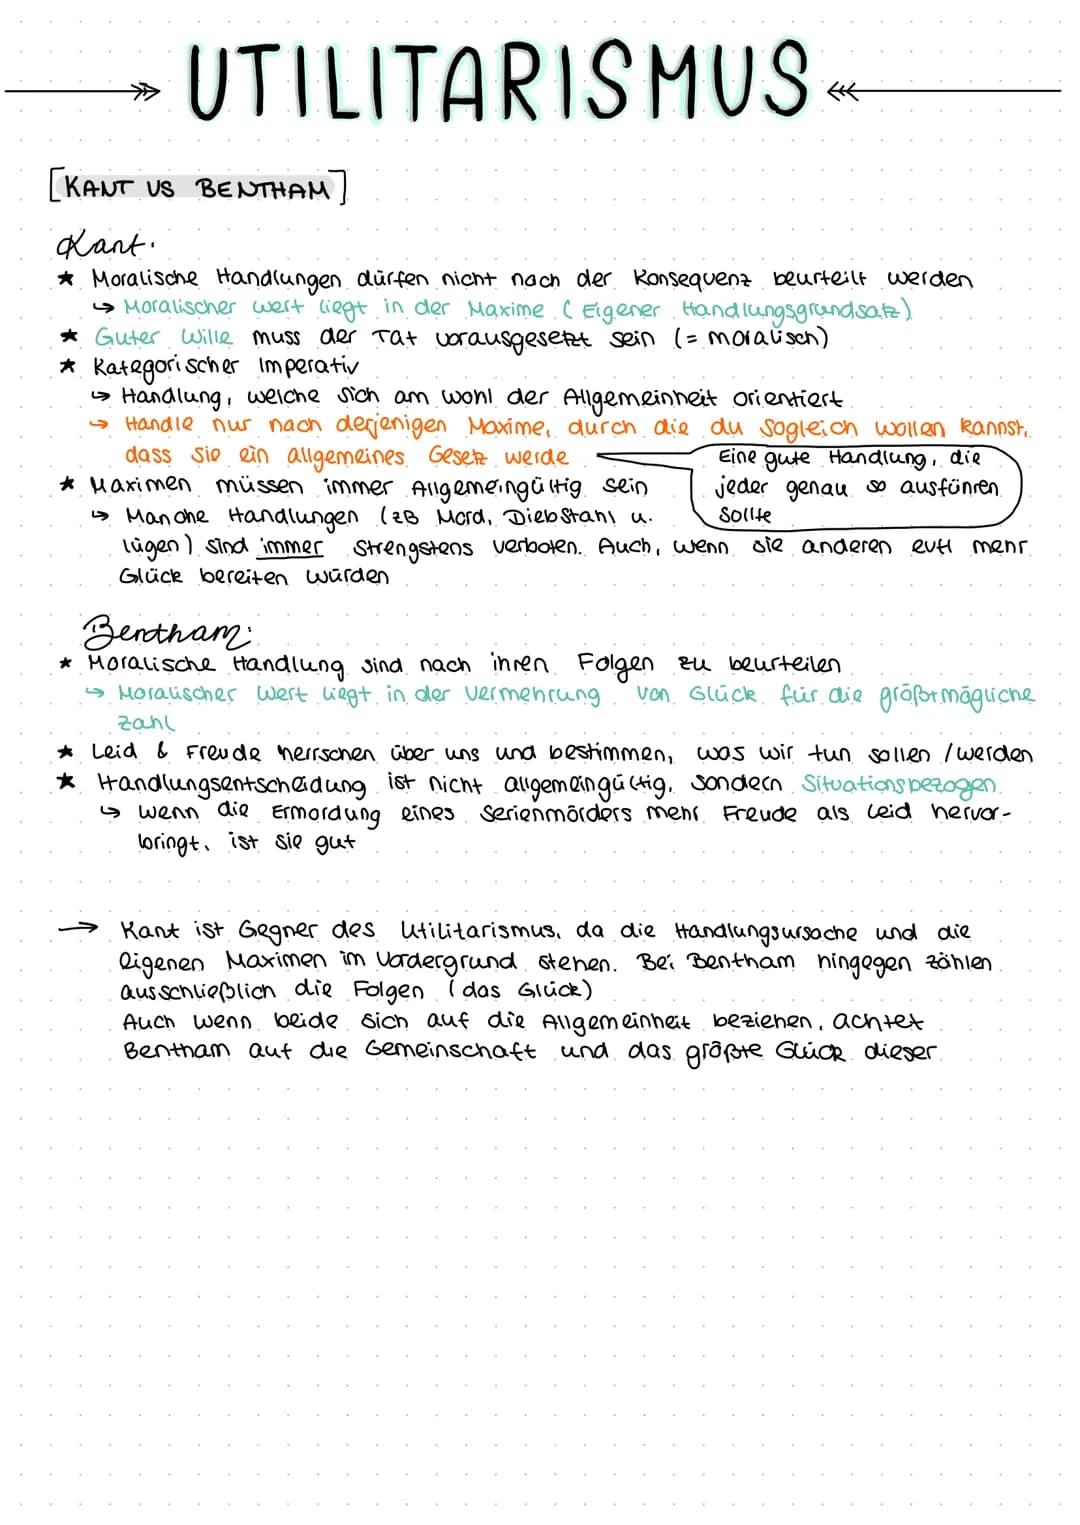 UTILITARISMUS
[KANT VS BENTHAM]
Kant:
★ Moralische Handlungen dürfen nicht nach der Konsequenz beurteilt werden
↳ Moralischer Wert liegt in der Maxime (Eigener Handlungsgrundsatz)
★ Guter Wille muss der Tat vorausgesetzt sein (= moralisch)
★ Kategorischer Imperativ
↳ Handlung, welche sich am Wohl der Allgemeinheit orientiert
→ Handle nur nach derjenigen Maxime, durch die du sogleich wollen kannst,
dass sie ein allgemeines Gesetz werde
Eine gute Handlung, die
jeder genau so ausführen
sollte
★ Maximen müssen immer Allgemeingültig sein
↳ Manche Handlungen (zB Mord, Diebstahl u.
lügen) sind immer strengstens verboten. Auch, wenn sie anderen evtl mehr
Glück bereiten würden
Bentham:
★ Moralische Handlung sind nach ihren Folgen zu beurteilen
↳ Moralischer Wert liegt in der Vermehrung von Glück für die größtmögliche
Zahl
★ Leid & Freude herrschen über uns und bestimmen, was wir tun sollen / werden
★ Handlungsentscheidung ist nicht allgemeingültig, sondern Situationsbezogen
↳ wenn die Ermordung eines Serienmörders mehr Freude als Leid hervor-
bringt, ist sie gut
→ Kant ist Gegner des Utilitarismus, da die Handlungsursache und die
eigenen Maximen im Vordergrund stehen. Bei Bentham hingegen zählen
ausschließlich die Folgen (das Glück)
Auch wenn beide sich auf die Allgemeinheit beziehen, achtet
Bentham auf die Gemeinschaft und das größte Glück dieser